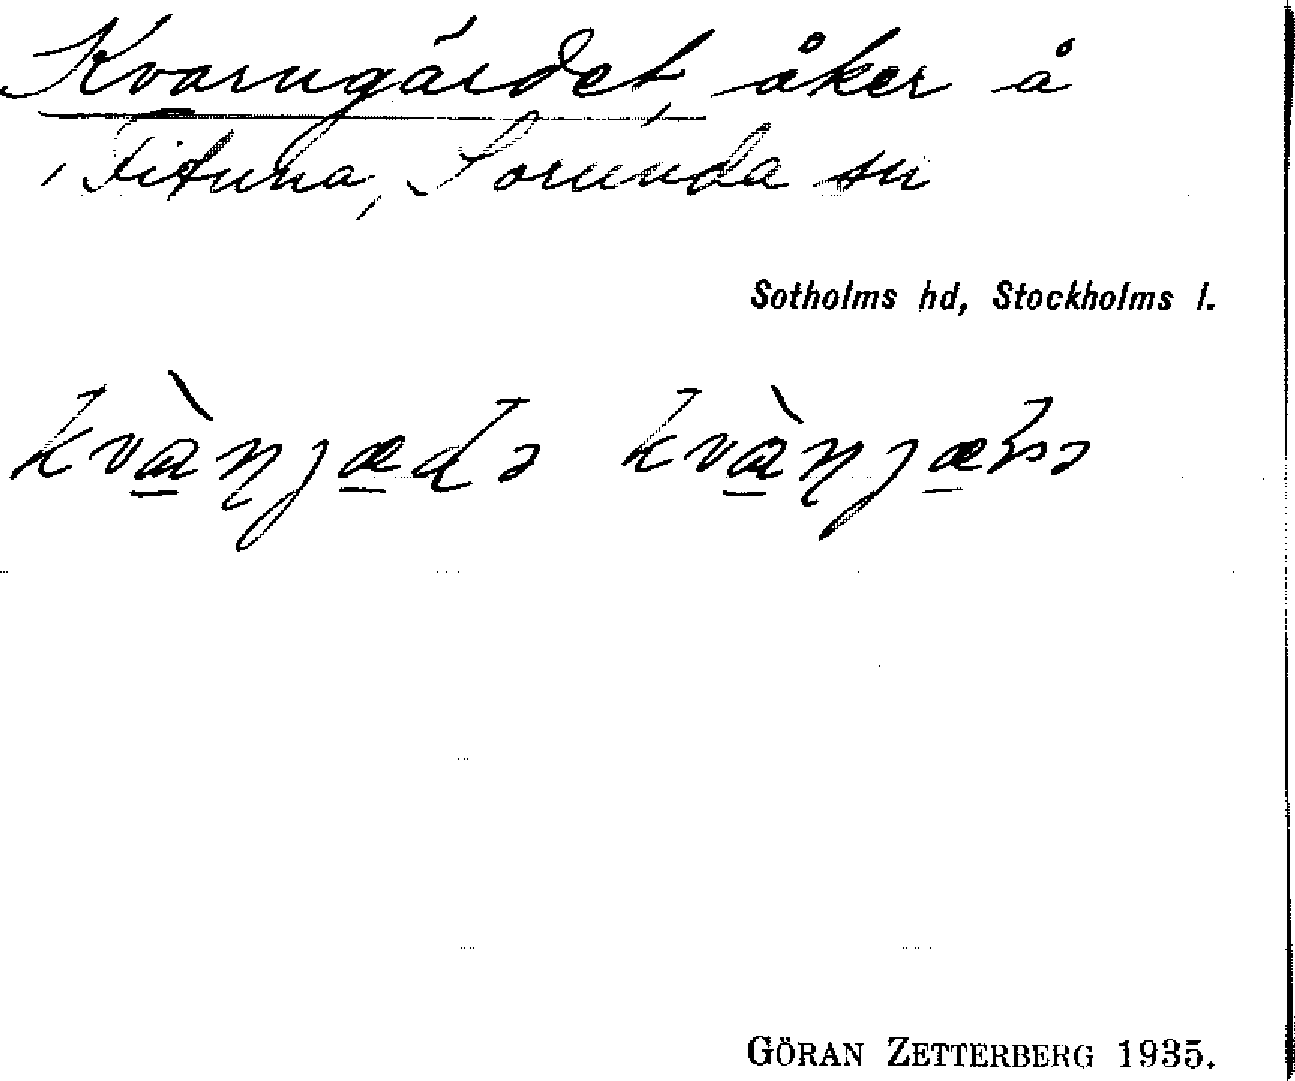 Kvarngärdet, åker å
Fituna, Sorunda sn
Sotholms hd, Stockholms l.
kvàṉjæḍə kvàṉjæḍə
GÖRAN ZETTERBERG 1935.